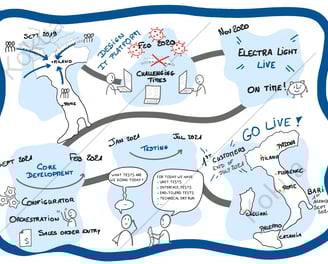 SEPT 2019
MILANO
ROME
DESIGN
IT PLATFORM
FEB 2020
CHALLENGING
TIMES
NOV 2020
ELECTRA LIGHT
LIVE
ON TIME!
SEPT 2020
FEB 2021
CORE
DEVELOPMENT
CONFIGURATOR
ORCHESTRATION
SALES ORDER ENTRY
JAN 2021
TESTING
JUL 2021
WHAT TESTS ARE
WE DOING TODAY?
FOR TODAY WE HAVE
- UNIT TESTS
- INTERFACE TESTS
- END-TO-END TESTS
- TECHNICAL DRY RUN
GO LIVE!
1ST CUSTOMERS
END OF
JULY 2021
PADOVA
MILANO
FLORENCE
ROME
CAGLIARI
PALERMO
CATANIA
BARI
SEPT